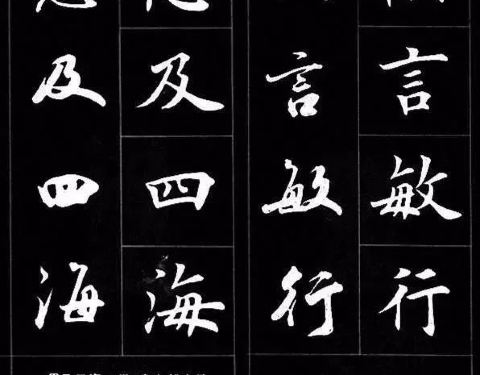 言敏行
言敏行
及四海
及四海